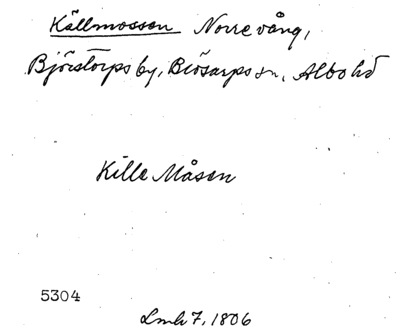 Källmossen Norrevång,
Björstorps by, Brösarps sn, Albo hd
Kille Måsen
5304
Lmh 7, 1806